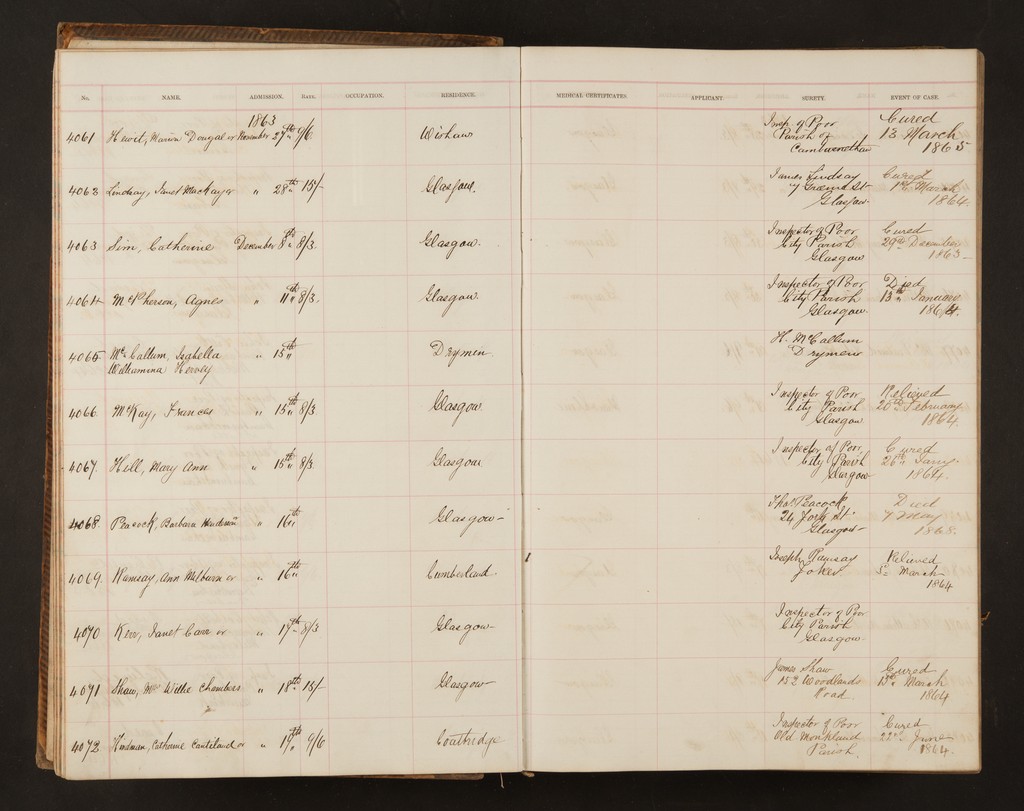 No. NAME. ADMISSION. RATE. OCCUPATION. RESIDENCE. MEDICAL CERTIFICATES. APPLICANT. SURETY. EVENT OF CASE.
1863
4061 Hewit, Marion Dougal or November 27th 9/6 Wishaw Insp of Poor Parish of Cambusnethan Cured 13 March 1865
4063 Lindsay, Janet Mackay or " 28th 15/- Glasgow. James Lindsay Graeme St Glasgow Cured March 1864.
4063 Sim, Catherine December 8th 8/3. Glasgow. Inspector of Poor City Parish Glasgow Cured 29th December 1863
4064 McPherson, Agnes " 11th 8/3. Glasgow. Inspector of Poor City Parish Glasgow. Died 13th January 1864.
4065 McCallum, Isabella " 15th Drymen. H. McCallum Drymen
Wilhamina Hervey
4066 McKay, Frances " 15th 8/3 Glasgow Inspector of Poor City Parish Glasgow Relieved 20th February 1864.
4067. Hill, Mary Ann " 15th 8/3 Glasgow Inspector of Poor City Parish Glasgow Cured 26th Jany. 1864.
4068. Peacock, Barbara Henderson " 16th Glasgow- Thos. Peacock 24 St. Glasgow- Died 7 May 1868.
4069. Ramsay, Ann Milburn or " 16th Cumberland. Joseph Ramsay Joiner. Relieved 5th March 1864
4070 Kerr, Janet Carr or " 17th 8/3 Glasgow- Inspector of Poor City Parish Glasgow.
4071 Shaw, Mrs Willie Chambers " 18th 15/- Glasgow- James Shaw 152 Woodlands Road. Cured 15th March 1864
4072. Hindman, Catherine or " 19th 9/6 Coatbridge Inspector of Poor Old Monkland Parish. Cured 22nd June 1864.